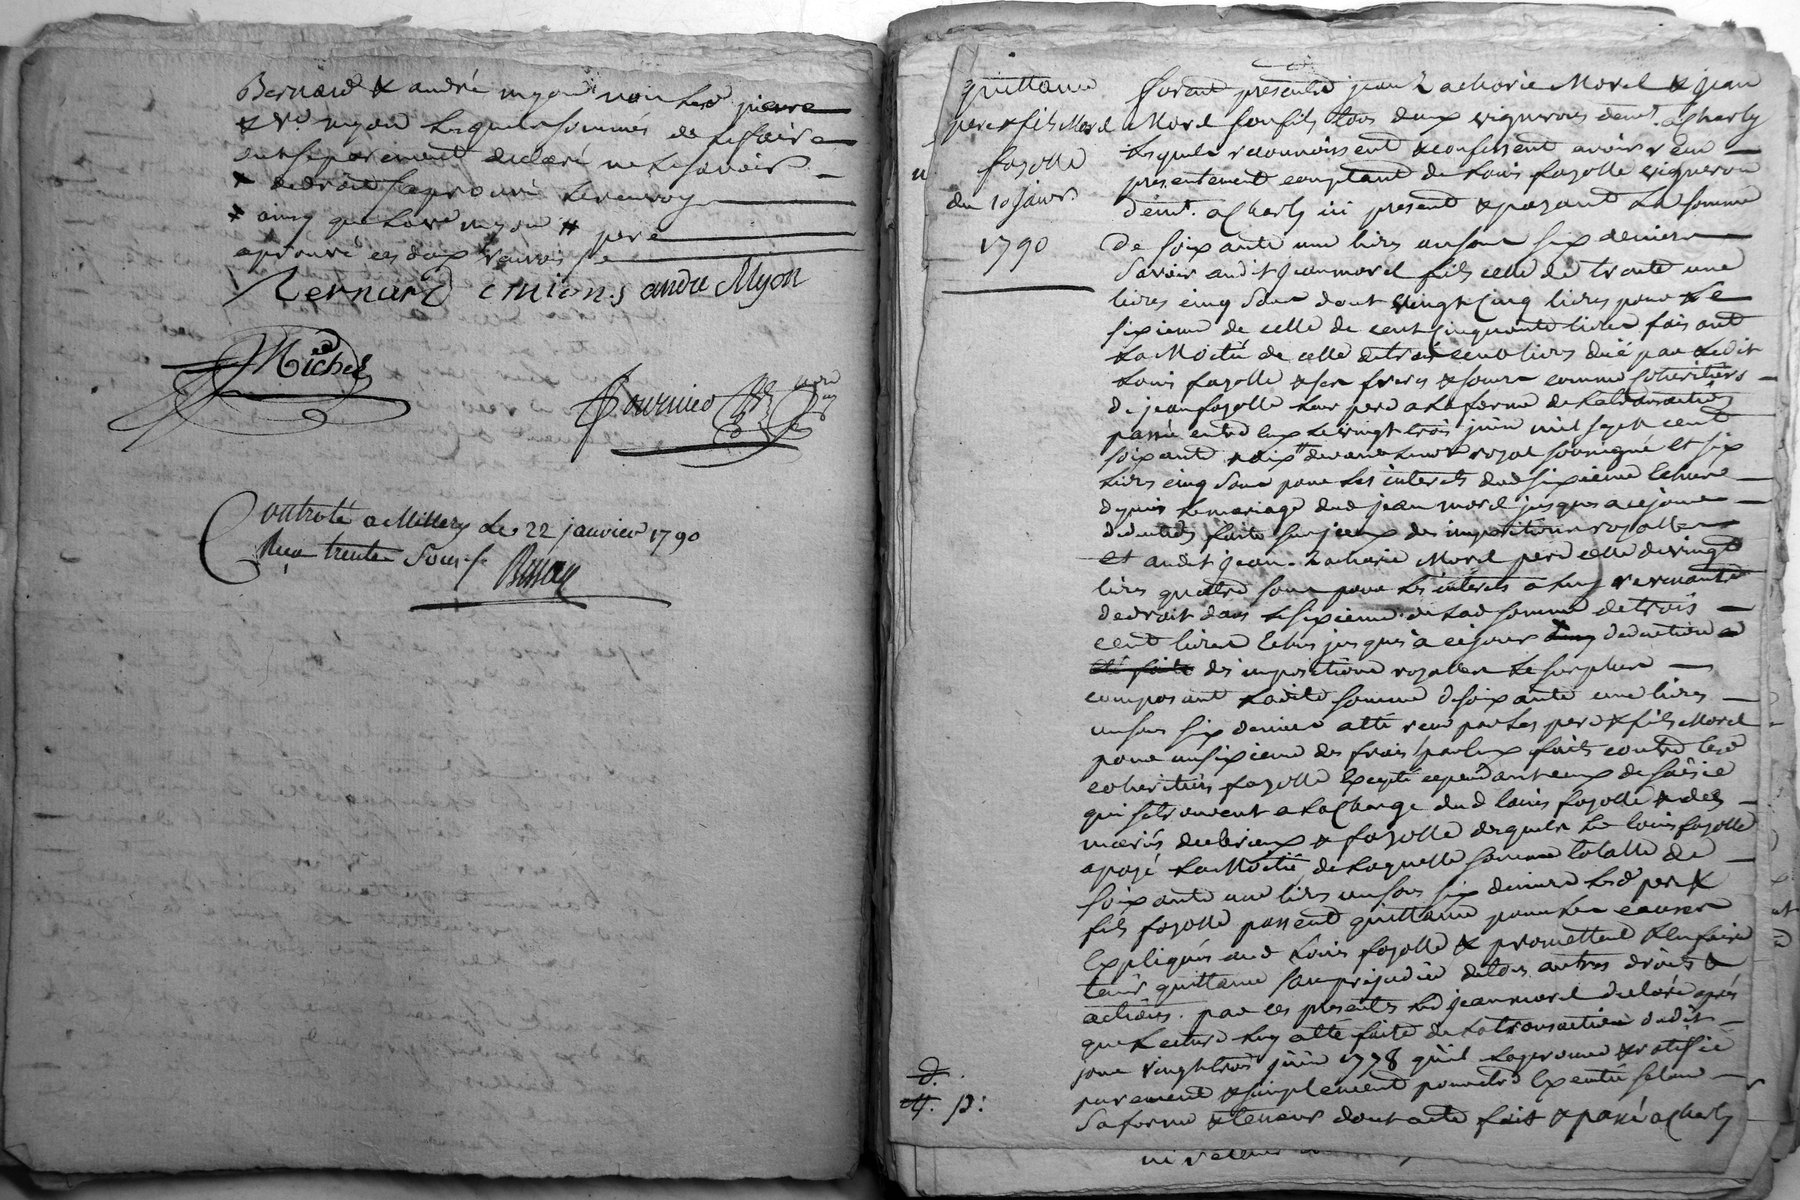 Bernard & andré myon non lesd pierre
& Ve myon lesquels sommés de ce faire
ont separement declaré ne le savoir
& de droit approuvé le renvoy
& ainsy que loue myon # pere
aprouvé ces deux renvois
Bernard mions andre Myon
Michel
Fournier
Controle a Millery Le 22 janvier 1790
Reçu trente Sous
quittance
pere & fils Morel
fayolle
du 10 janvr
1790
furent presents jean Zacharie Morel & jean
Morel son fils tous deux vignerons demt a Charly
lesquels reconnoissent & confessent avoir reçu
presentement comptant de Louis fayolle vigneron
demt. a Charly ici present & payant la somme
de soixante une livres un sou six deniers
savoir audit jean morel fils celle de trente une
livres cinq sous dont vingt cinq livres pour le
sixieme de celle de cent cinquante livres faisant
la Moitié de celle de trois cent livres duë par ledit
Louis fayolle & ses freres & soeurs comme coheritiers
de jean fayolle leur pere a la forme de la transaction
passée entre eux le vingt trois juin mil sept cent
soixante & dix devant le no.re royal soussigné et six
livres cinq sous pour les interets dud sixieme echus
depuis le mariage dud jean morel jusques a ce jour
deduction faite sur iceux des impositions royalles
et audit jean Zacharie Morel pere celle de vingt
livres quatre sous pour les interets a luy revenants
de droit dans le sixieme de lad somme de trois
cent livres echus jusques a ce jour deduction
des impositions royalles le surplus
composant ladite somme de soixante une livres
un sou six deniers a été reçu par les pere & fils Morel
pour un sixieme des frais par eux faits contre lesd
coheritiers fayolle excepté cependant ceux de saisie
qui se trouvent a la charge dud louis fayolle & des
mariés & fayolle desquels led louis fayolle
a payé la Moitié de laquelle somme totalle de
soixante une livres un sou six deniers lesd pere &
fils fayolle passent quittance pour les causes
expliquées aud Louis fayolle & promettent l'en faire
tenir quittance sans prejudice de tous autres droits &
actions. par ces presentes led jean morel declare après
que lecture luy a été faite de la transaction dudit
jour vingt trois juin 1778 qu'il l'approuve & ratifie
purement & simplement pour etre executée selon
sa forme & teneur dont acte fait & passé a Charly